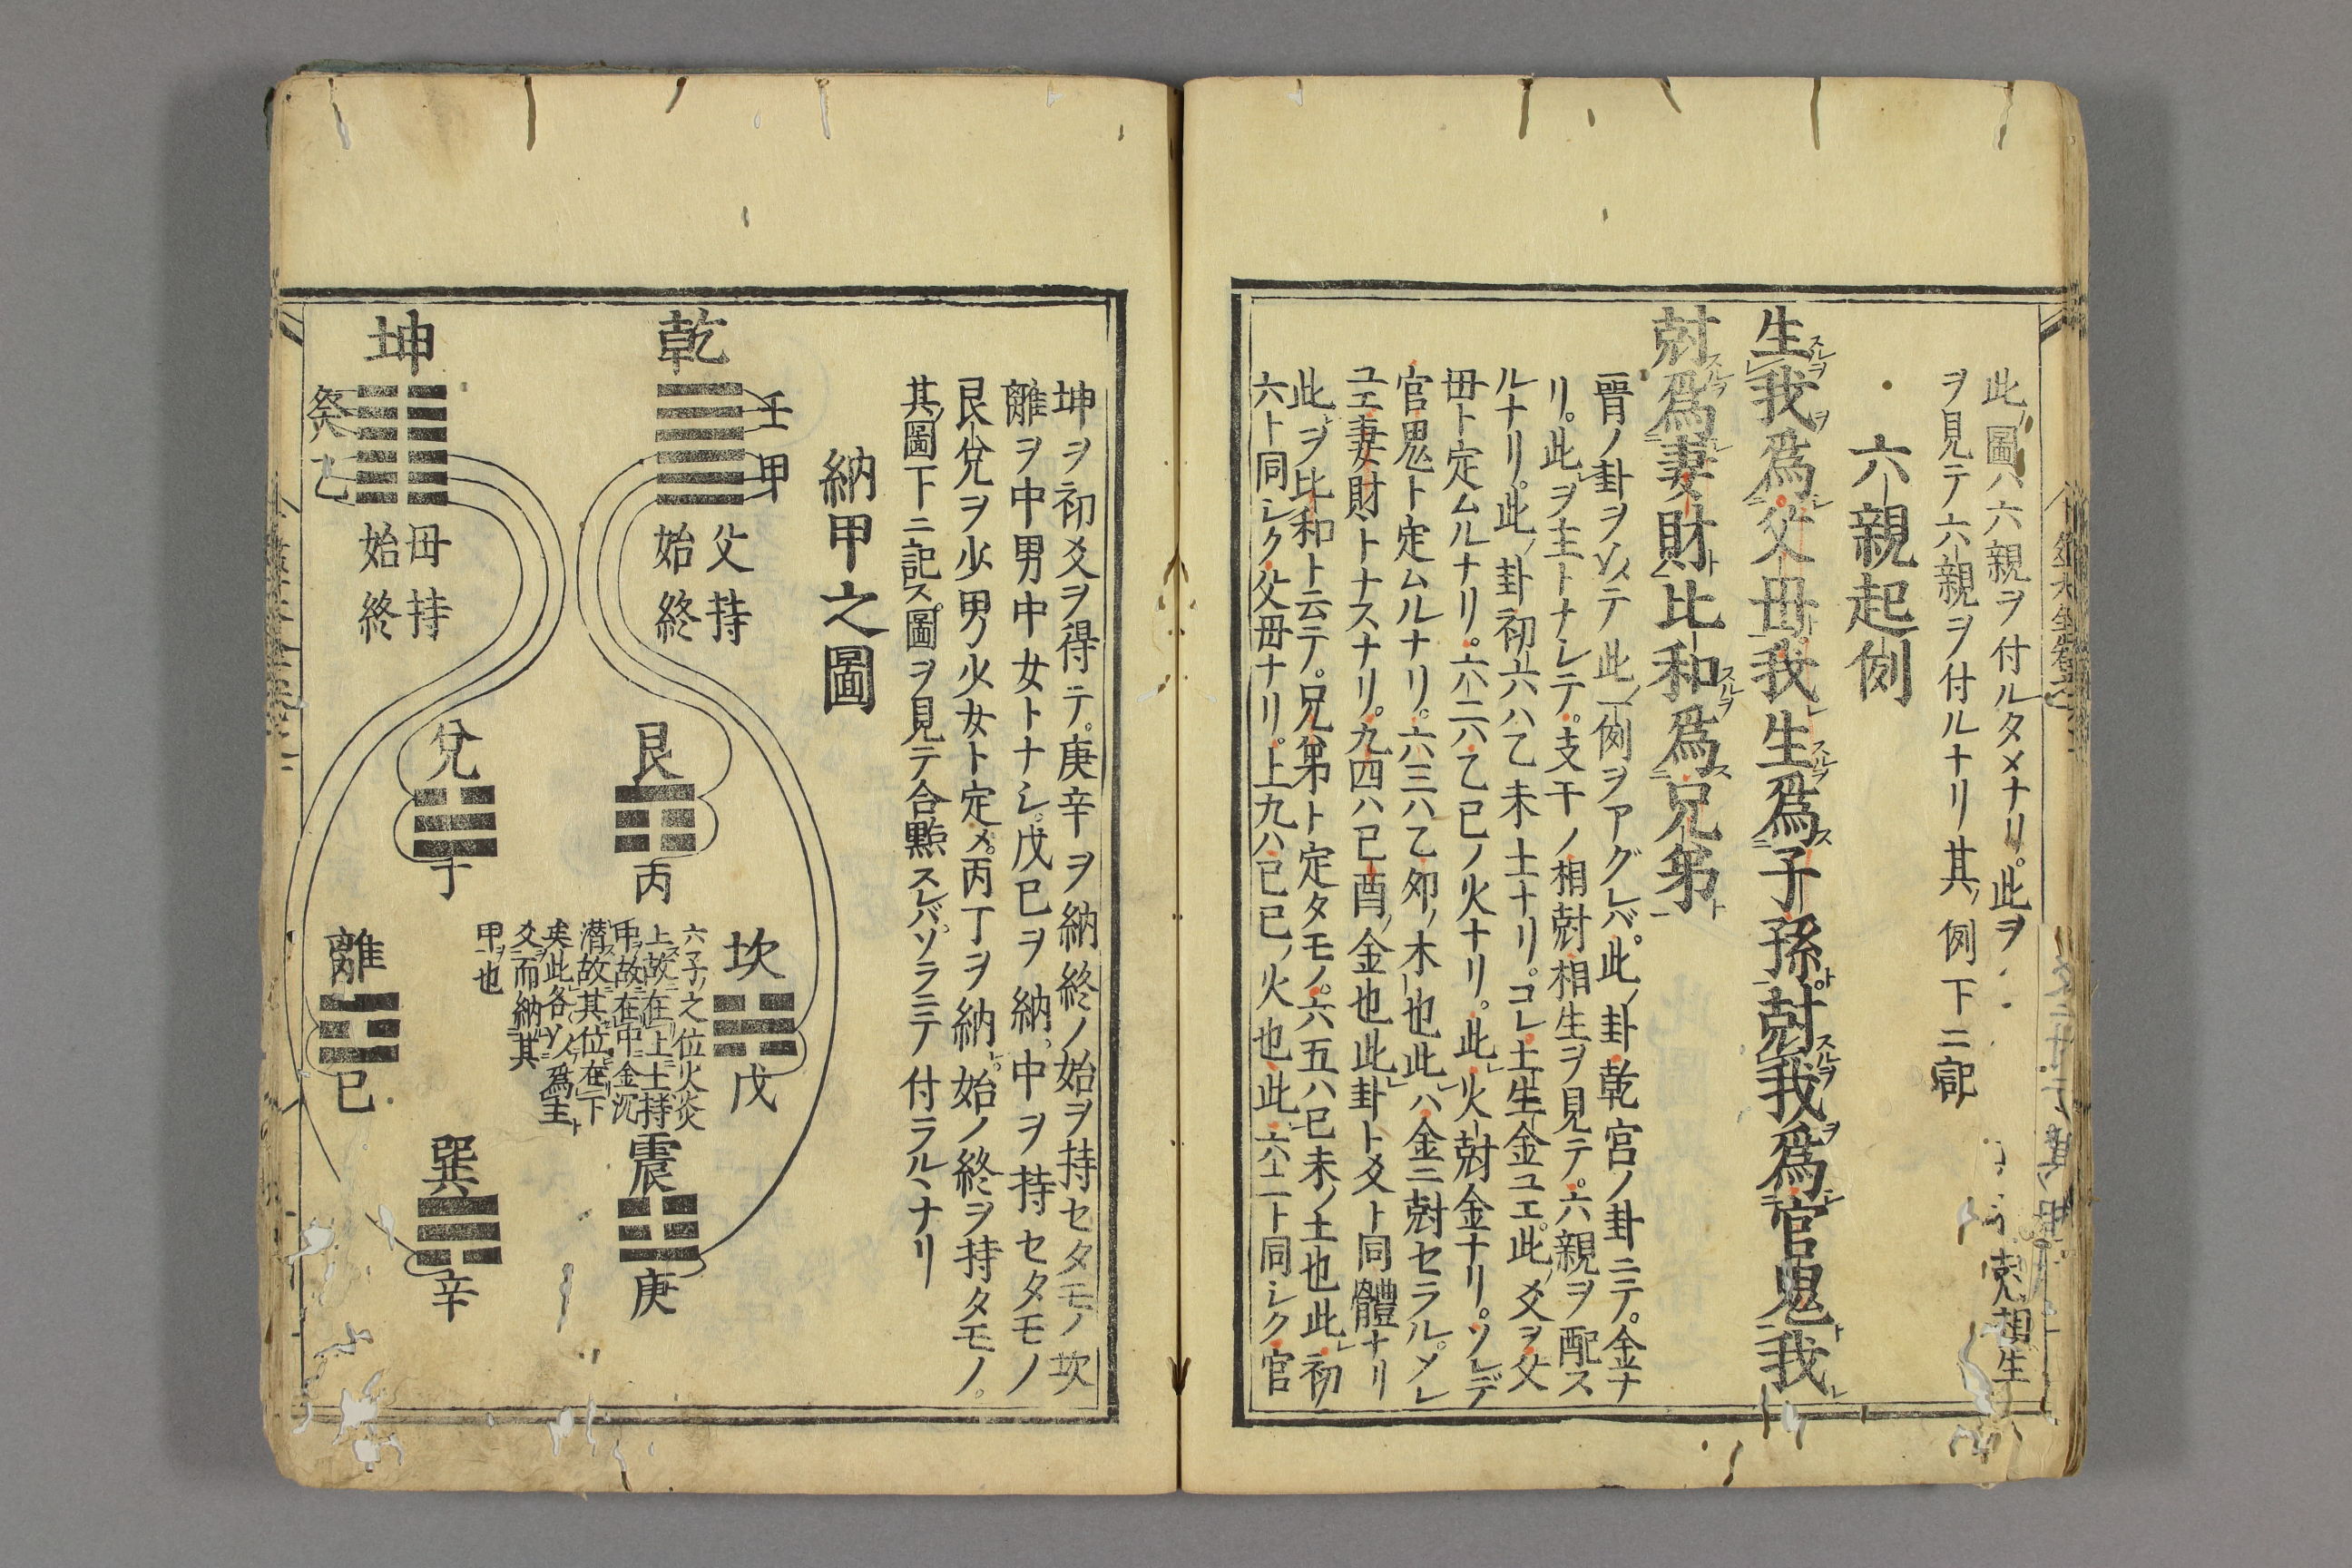 此ノ圖ハ六親ヲ付ルタメナリ。此ヲ 尅相生
ヲ見テ六親ヲ付ルナリ其ノ例下ニ記
六親起例
生スルヲ我ヲ爲父母ト我生スルヲ爲ス子孫ト尅スルヲ我ヲ爲官鬼ト我
尅スルヲ爲妻財ト比和スルヲ爲ス兄弟ト
晉ノ卦ヲソメテ此ノ一例ヲアグレバ。此ノ卦乾宮ノ卦ニテ。金ナ
リ。此ヲ主トナレテ。支干ノ相尅相生ヲ見テ。六親ヲ配ス
ルナリ。此ノ卦初六ハ乙未土ナリ。コレ土生金ユエ。此ノ爻ヲ父
毋ト定ムルナリ。六二ハ乙巳ノ火ナリ。此火尅金ナリ。ソレデ
官鬼ト定ムルナリ。六三ハ乙夘ノ木也此ハ金ニ尅セラル。メレ
ユエ妻財トナスナリ。九四ハ已酉ノ金也此卦ト爻ト同體ナリ
此ヲ比和ト云テ。兄弟ト定タモノ。六五ハ已未ノ土也此初
六ト同シク父毋ナリ。上九ハ已巳ノ火也此六二ト同シク官
坤ヲ初爻ヲ得テ。庚辛ヲ納終ノ始ヲ持セタモノ坎
離ヲ中男中女トナシ。戊巳ヲ納中ヲ持セタモノ
艮兌ヲ少男少女ト定メ。丙丁ヲ納始ノ終ヲ持タモノ。
其ノ圖下ニ記ス圖ヲ見テ合點スレバ。ソラニテ付ラルヽナリ
納甲之圖
乾
壬
甲
父持
始終
坤
癸
乙
母持
始終
艮
丙
兌
丁
坎
戊
六子ノ之位火炎
上ス故ニ在上ニ土持
中ヲ故ニ在中ニ金沉
潜ス故ニ其位在下ニ
矣此各以爲主ト
爻ヲ而納其
甲ヲ也
離
巳
震
庚
巽
辛